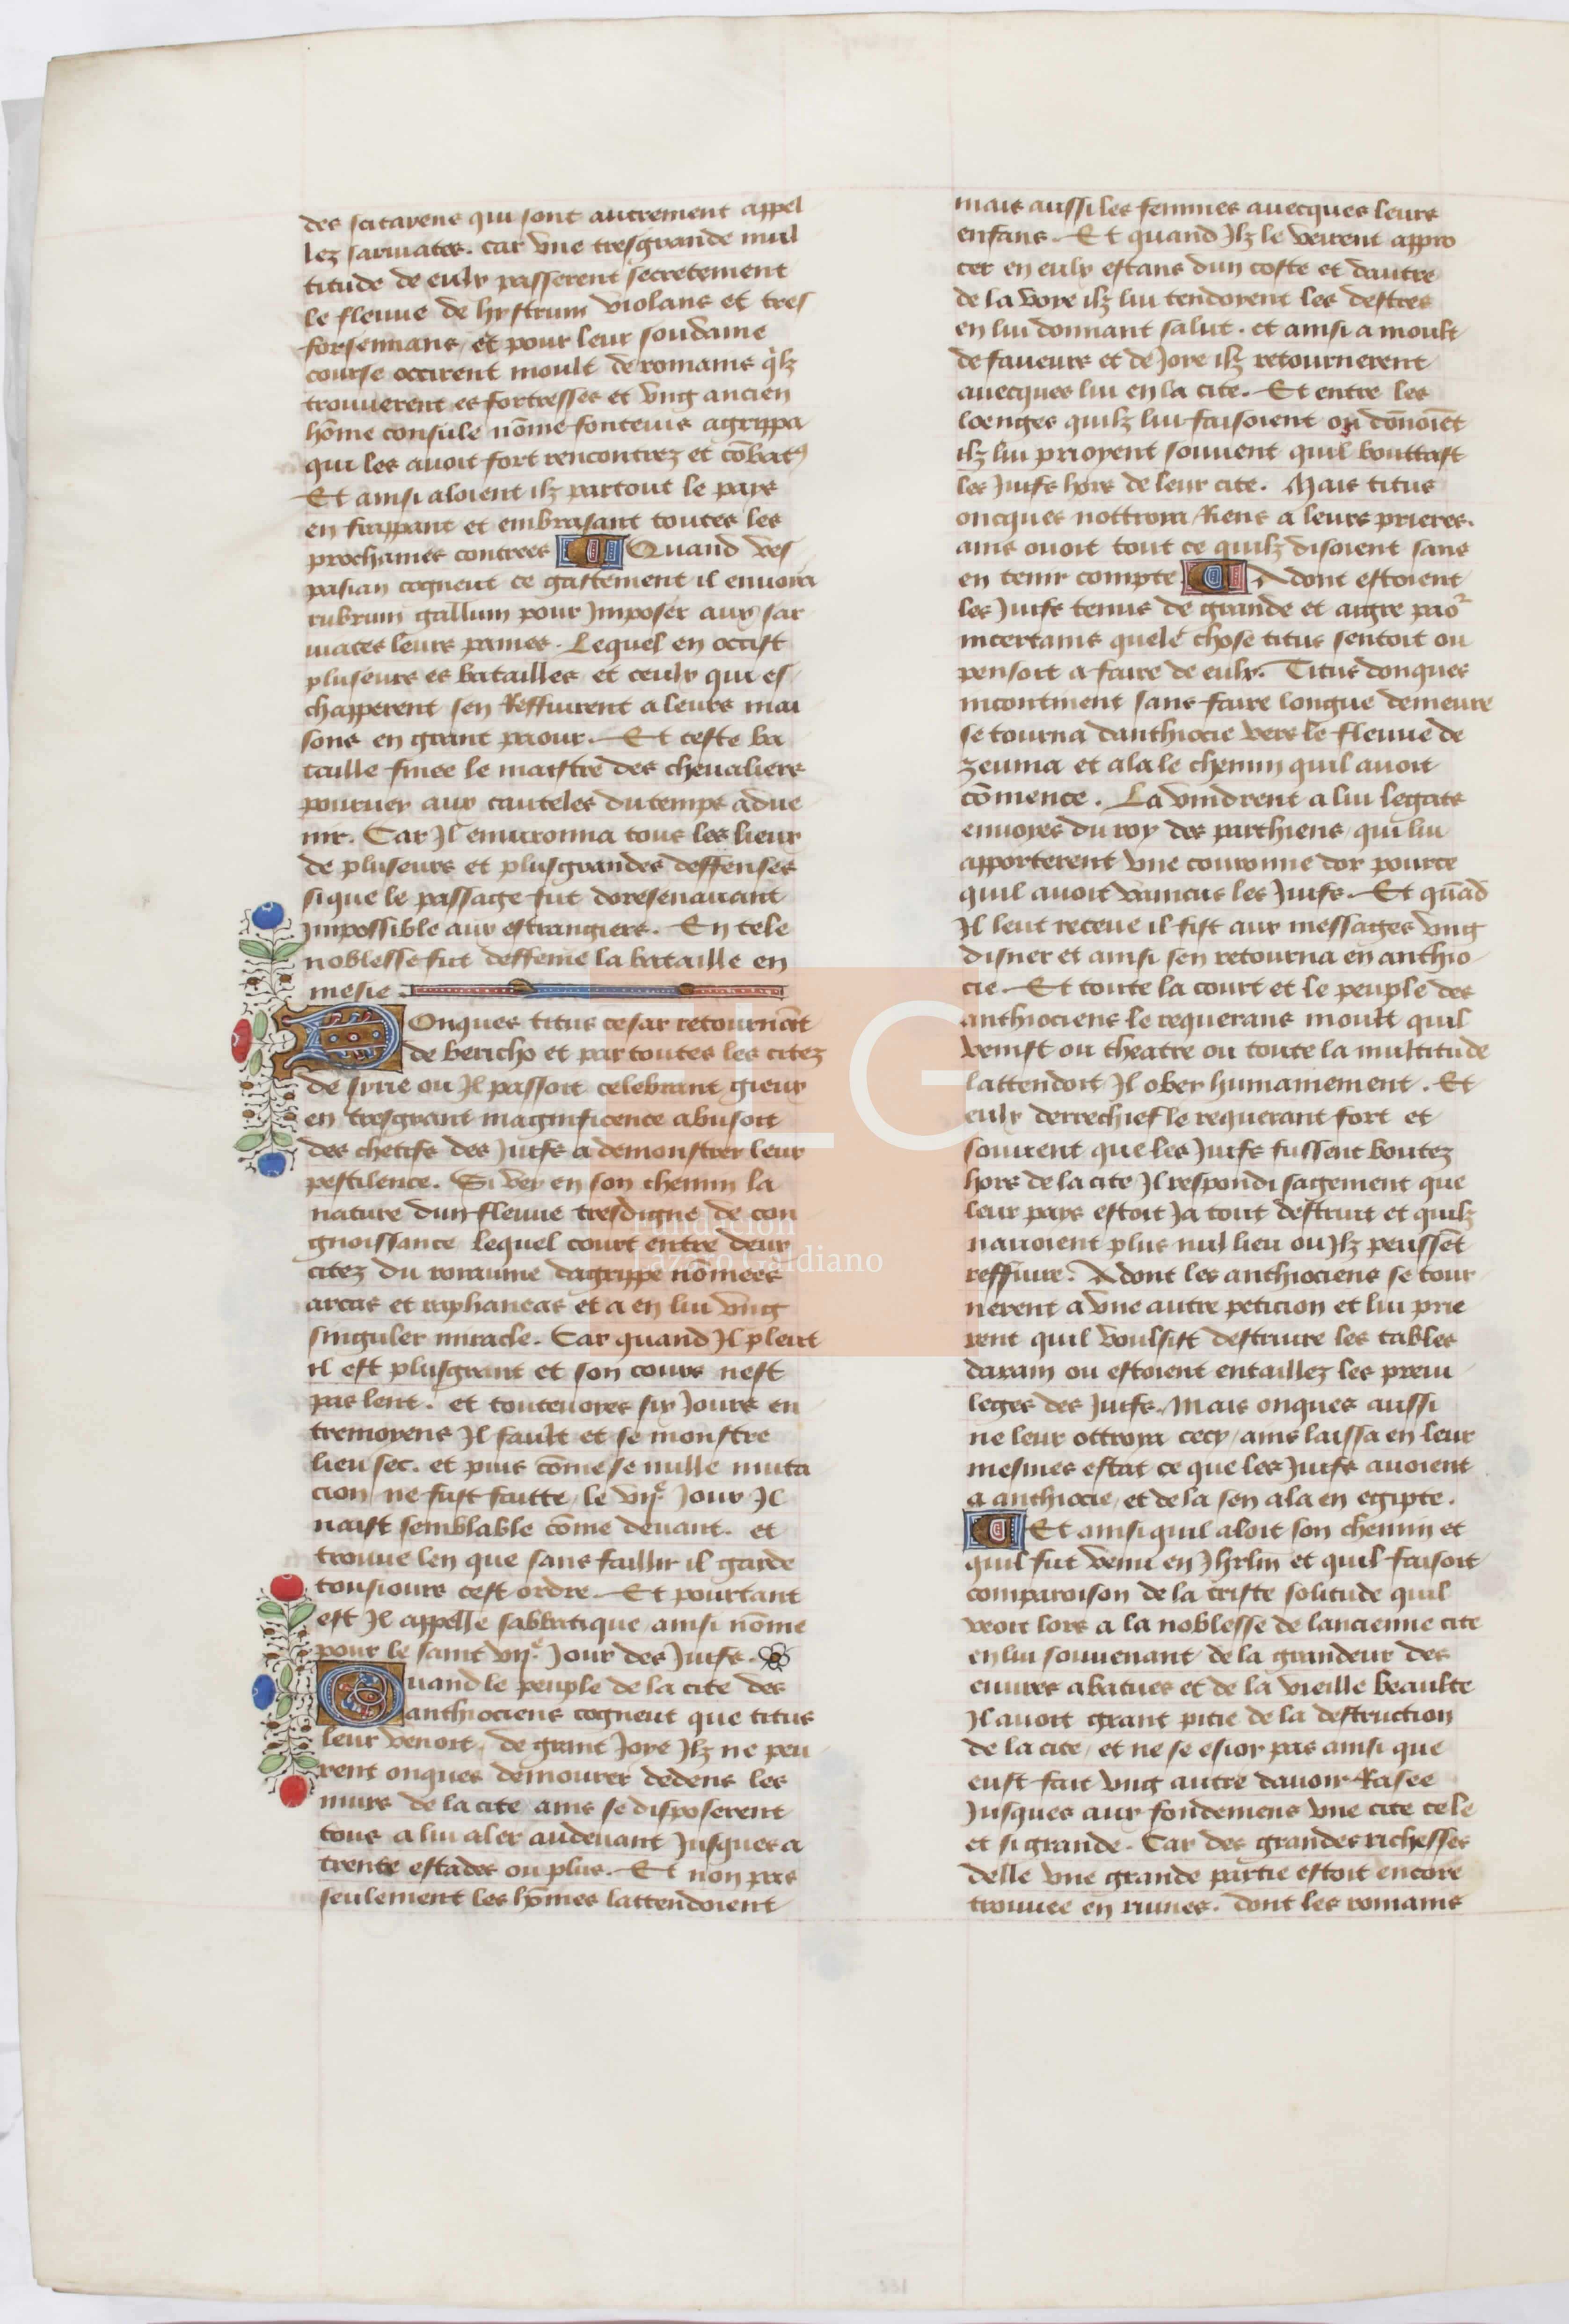 des scitayens qui sont autrement appel
lez sarmates. car vne tresgrande mul
titude de eulx passerent secretement
le fleuue de hystrum violans et tres
forsennans, et pour leur soudaine
course occirent moult de romains q̃lz
trouuerent es fortresses et vng ancien
hõme consule nõme fonteius agrippa
qui les auoit fort rencontrez et cõbatꝰ
Et ainsi aloient ilz partout le pays
en frappant et embrasant toutes les
prochaines contrees Quand ves
pasian cogneut ce gastement il enuoia
rubrum gallum pour Imposer aux sar
mates leurs paines. Lequel en occist
pluseurs es batailles et ceulx qui es
chapperent sen Reffuirent a leurs mai
sons en grant paour. Et ceste ba
taille finee le maistre des cheualiers
pourueu aux cauteles du temps adue
nir. Car Il enuironna tous les lieux
de pluseurs et plusgrandes deffenses
sique le passage fut doresenauant
Impossible aux estrangiers. En tele
noblesse fut deffenie la bataille en
mesie.
Donques titus cesar retournãt
de bericho et par toutes les citez
de syrie ou Il passoit celebrant gieux
en tresgrant magnificence abusoit
des chetifs des Juifs a demonstrer leur
pestilence. Si vey en son chemin la
nature dun fleuue tresdigne de con
gnoissance lequel court entre deux
citez du roiaume dagrippe nõmees
arcas et raphaneas et a en lui vng
singuler miracle. Car quand Il pleut
il est plusgrant et son cours nest
pas lent. et touteuoyes six Jours en
tremoyens Il fault et se monstre
lieu sec. et puis cõme se nulle muta
cion ne fust faitte, le vije Jour Il
naist semblable cõme deuant. et
trouue len que sans faillir il garde
tousiours cest ordre. Et pourtant
est Il appelle sabbatique ainsi nõme
pour le saint vije Jour des Juifs.
Quand le peuple de la cite des
anthiociens cogneut que titus
leur venoit, de grant Joye Ilz ne peu
rent onques demourer dedens les
murs de la cite ains se disposerent
tous a lui aler audeuant Jusques a
trente estades ou plus. Et non pas
seulement les hõmes lattendoient
mais aussi les femmes auecques leurs
enfans. Et quand Ilz le veirent appro
cer en eulx estans dun coste et dautre
de la voye ilz lui tendoyent les destres
en lui donnant salut. et ainsi a moult
de faueurs et de Joye ilz retournerent
auecques lui en la cite. Et entre les
loenges quilz lui faisoient ou dõnoiẽt
ilz lui prioyent souuent quil bouttast
les Juifs hors de leur cite. Mais titus
oncques nottroya Riens a leurs prieres.
ains ouoit tout ce quilz disoient sans
en tenir compte Adont estoient
les Juifs tenus de grande et aigre paor
incertains quele chose titus sentoit ou
pensoit a faire de eulx. Titus donques
incontinent sans faire longue demeure
se tourna danthiocie vers le fleuue de
zeuma et ala le chemin quil auoit
cõmence. La vindrent a lui legats
enuoyes du roy des parthiens, qui lui
apporterent vne couronne dor pource
quil auoit vaincus les Juifs. Et quãd
Il leut receue il fist aux messages vng
disner et ainsi sen retourna en anthio
cie. Et toute la court et le peuple des
anthiociens le requerans moult quil
venist ou theatre ou toute la multitude
lattendoit Il obey humainement. Et
eulx derrechief le requerant fort et
souuent que les Juifs fussent boutez
hors de la cite Il respondi sagement que
leur pays estoit Ja tout destruit et quilz
nauoient plus nul lieu ou Ilz peussẽt
reffuire. Adont les anthiociens se tour
nerent a vne autre peticion et lui prie
rent quil voulsist destruire les tables
darain ou estoient entaillez les priui
leges des Juifs. Mais onques aussi
ne leur ottroya cecy, ains laissa en leur
mesmes estat ce que les Juifs auoient
a anthiocie, et de la sen ala en egipte.
Et ainsi quil aloit son chemin et
quil fut venu en Jhrlm et quil faisoit
comparoison de la triste solitude quil
veoit lors a la noblesse de lancienne cite
en lui souuenant de la grandeur des
euures abatues et de la vieille beaulte
Il auoit grant pitie de la destruction
de la cite, et ne se esior pas ainsi que
eust fait vng autre dauoir Rasee
Jusques aux fondemens vne cite tele
et si grande. Car des grandes richesses
delle vne grande partie estoit encore
trouuee en ruines. dont les romains
FLG
Fundación
Lázaro Galdiano